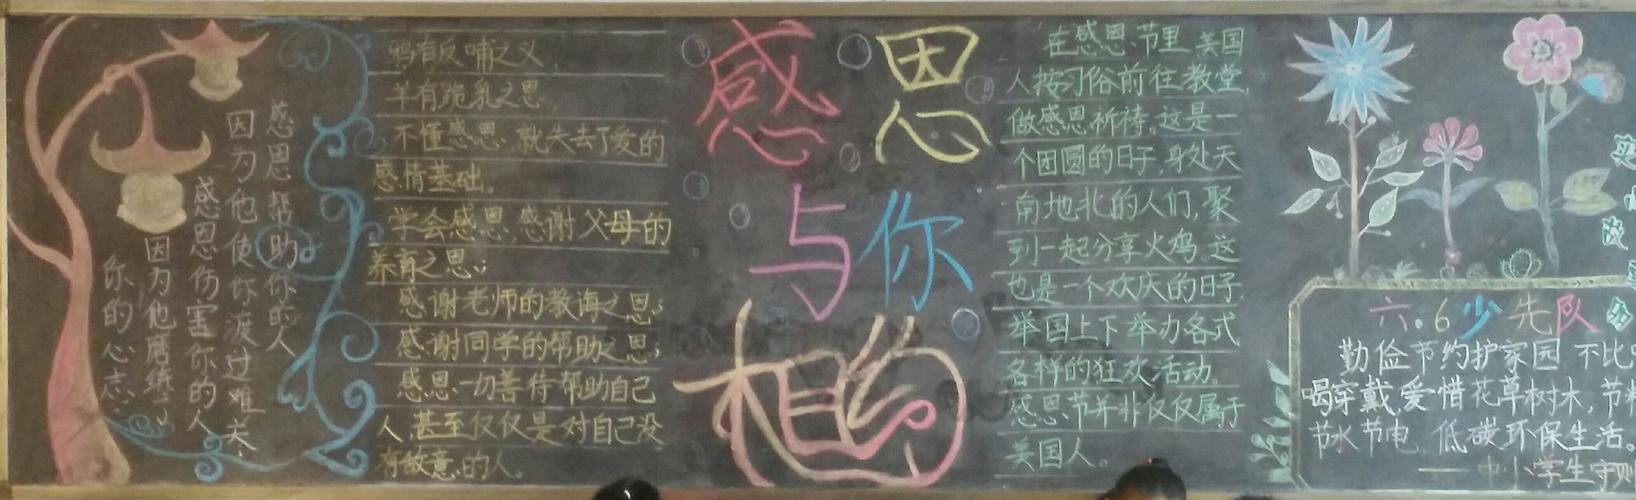 感恩帮助你的人
因为他使你渡过难关.
感恩伤害你的人
因为他磨练了
你的心志.
鸦有反哺之义,
羊有跪乳之恩,
不懂感恩,就失去了爱的
感情基础.
学会感恩,感谢父母的
养育之恩;
感谢老师的教诲之恩;
感谢同学的帮助之恩;
感恩一切善待帮助自己
人,甚至仅仅是对自己没
有敌意的人。
感恩
与你
相约
在感恩节里,美国
人按习俗前往教堂,
做感恩祈祷。这是一
个团圆的日子,身处天
南地北的人们,聚
到一起分享火鸡。这
也是一个欢庆的日子,
举国上下举办各式
各样的狂欢活动。
感恩节并非仅仅属于
美国人。
六.6少先队
勤俭节约护家园 不比
喝穿戴,爱惜花草树木,节粮
节水节电,低碳环保生活。
——中小学生守则